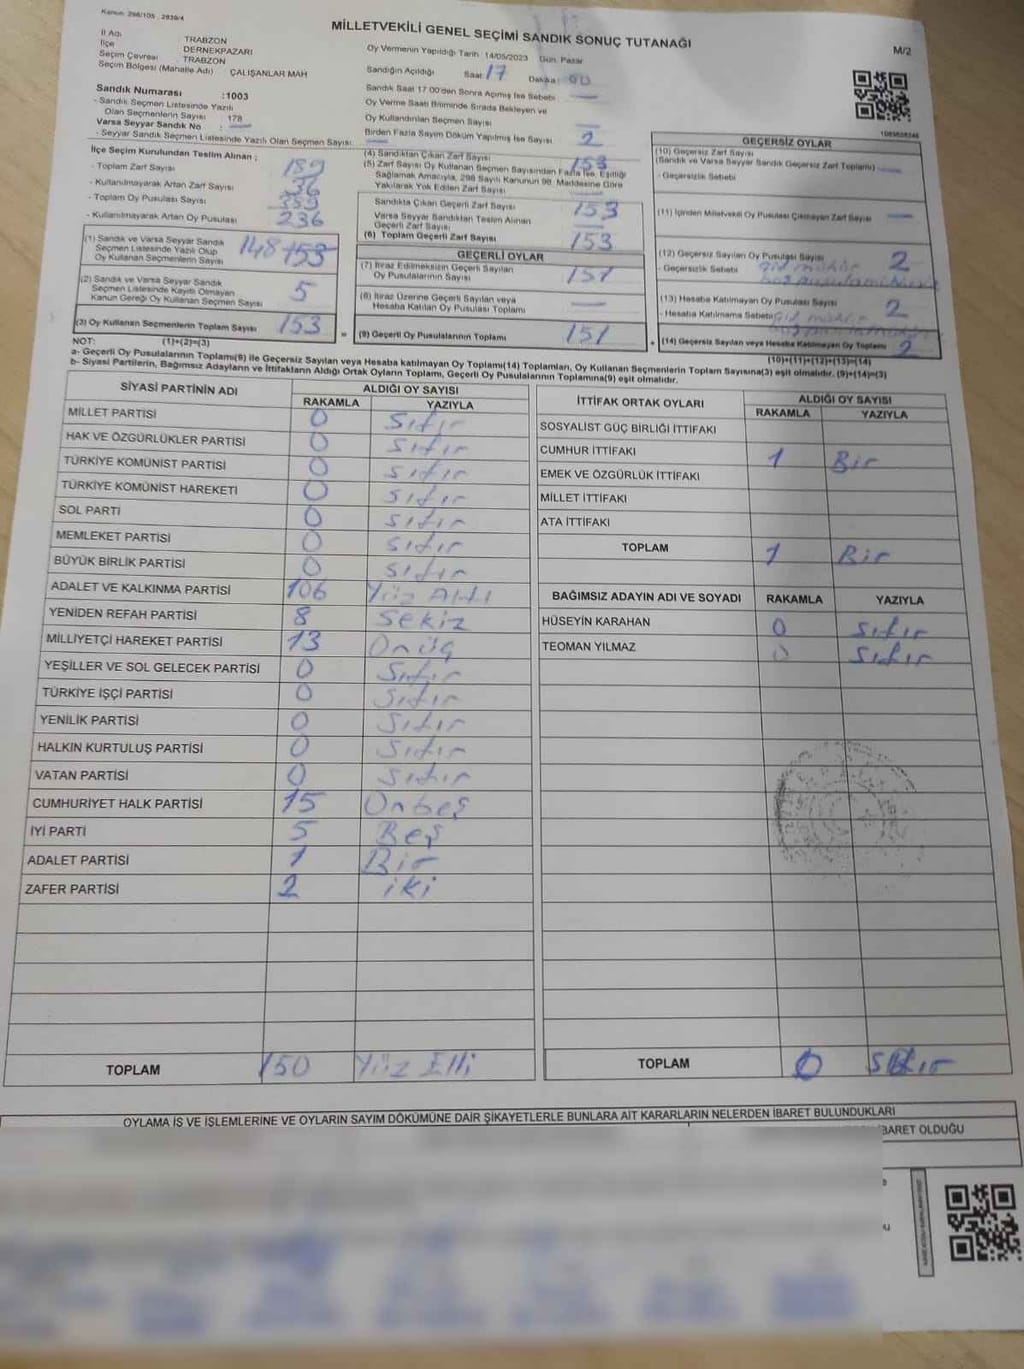 Kanun: 298/105 , 2839/4
MİLLETVEKİLİ GENEL SEÇİMİ SANDIK SONUÇ TUTANAĞI
M/2
İl Adı TRABZON
İlçe DERNEKPAZARI
Seçim Çevresi TRABZON
Seçim Bölgesi (Mahalle Adı) ÇALIŞANLAR MAH
Oy Vermenin Yapıldığı Tarih 14/05/2023 Gün. Pazar
Sandığın Açıldığı Saat 17 Dakika: 00
Sandık Numarası :1003
- Sandık Seçmen Listesinde Yazılı
Olan Seçmenlerin Sayısı : 178
Varsa Seyyar Sandık No :
- Seyyar Sandık Seçmen Listesinde Yazılı Olan Seçmen Sayısı:
Sandık Saat 17.00'den Sonra Açılmış İse Sebebi
Oy Verme Saati Bitiminde Sırada Bekleyen ve
Oy Kullandırılan Seçmen Sayısı
Birden Fazla Sayım Döküm Yapılmış İse Sayısı 2
İlçe Seçim Kurulundan Teslim Alınan ;
- Toplam Zarf Sayısı 189
- Kullanılmayarak Artan Zarf Sayısı 36
- Toplam Oy Pusulası Sayısı 389
- Kullanılmayarak Artan Oy Pusulası 236
(1) Sandık ve Varsa Seyyar Sandık
Seçmen Listesinde Yazılı Olup
Oy Kullanan Seçmenlerin Sayısı 148 153
(2) Sandık ve Varsa Seyyar Sandık
Seçmen Listesinde Kayıtlı Olmayan
Kanun Gereği Oy Kullanan Seçmen Sayısı 5
(3) Oy Kullanan Seçmenlerin Toplam Sayısı 153
(4) Sandıktan Çıkan Zarf Sayısı 153
(5) Zarf Sayısı Oy Kullanan Seçmen Sayısından Fazla İse, Eşitliği
Sağlamak Amacıyla, 298 Sayılı Kanunun 98. Maddesine Göre
Yakılarak Yok Edilen Zarf Sayısı
Sandıkta Çıkan Geçerli Zarf Sayısı 153
Varsa Seyyar Sandıktan Teslim Alınan
Geçerli Zarf Sayısı
(6) Toplam Geçerli Zarf Sayısı 153
GEÇERLİ OYLAR
(7) İtiraz Edilmeksizin Geçerli Sayılan
Oy Pusulalarının Sayısı 151
(8) İtiraz Üzerine Geçerli Sayılan veya
Hesaba Katılan Oy Pusulası Toplamı
= (9) Geçerli Oy Pusulalarının Toplamı 151
GEÇERSİZ OYLAR
(10) Geçersiz Zarf Sayısı
(Sandık ve Varsa Seyyar Sandık Geçersiz Zarf Toplamı)
- Geçersizlik Sebebi
(11) İçinden Milletvekili Oy Pusulası Çıkmayan Zarf Sayısı
(12) Geçersiz Sayılan Oy Pusulası Sayısı 2
- Geçersizlik Sebebi
(13) Hesaba Katılmayan Oy Pusulası Sayısı 2
- Hesaba Katılmama Sebebi
+ (14) Geçersiz Sayılan veya Hesaba Katılmayan Oy Toplamı 2
NOT: (1)+(2)=(3)
(10)+(11)+(12)+(13)=(14)
a- Geçerli Oy Pusulalarının Toplamı(9) ile Geçersiz Sayılan veya Hesaba katılmayan Oy Toplamı(14) Toplamları, Oy Kullanan Seçmenlerin Toplam Sayısına(3) eşit olmalıdır. (9)+(14)=(3)
b- Siyasi Partilerin, Bağımsız Adayların ve İttifakların Aldığı Ortak Oyların Toplamı, Geçerli Oy Pusulalarının Toplamına(9) eşit olmalıdır.
SİYASİ PARTİNİN ADI ALDIĞI OY SAYISI
RAKAMLA YAZIYLA
MİLLET PARTİSİ 0 Sıfır
HAK VE ÖZGÜRLÜKLER PARTİSİ 0 Sıfır
TÜRKİYE KOMÜNİST PARTİSİ 0 Sıfır
TÜRKİYE KOMÜNİST HAREKETİ 0 Sıfır
SOL PARTİ 0 Sıfır
MEMLEKET PARTİSİ 0 Sıfır
BÜYÜK BİRLİK PARTİSİ 0 Sıfır
ADALET VE KALKINMA PARTİSİ 106 Yüz Altı
YENİDEN REFAH PARTİSİ 8 Sekiz
MİLLİYETÇİ HAREKET PARTİSİ 13 Onüç
YEŞİLLER VE SOL GELECEK PARTİSİ 0 Sıfır
TÜRKİYE İŞÇİ PARTİSİ 0 Sıfır
YENİLİK PARTİSİ 0 Sıfır
HALKIN KURTULUŞ PARTİSİ 0 Sıfır
VATAN PARTİSİ 0 Sıfır
CUMHURİYET HALK PARTİSİ 15 Onbeş
İYİ PARTİ 5 Beş
ADALET PARTİSİ 1 Bir
ZAFER PARTİSİ 2 iki
TOPLAM 150 Yüz Elli
İTTİFAK ORTAK OYLARI ALDIĞI OY SAYISI
RAKAMLA YAZIYLA
SOSYALİST GÜÇ BİRLİĞİ İTTİFAKI
CUMHUR İTTİFAKI 1 Bir
EMEK VE ÖZGÜRLÜK İTTİFAKI
MİLLET İTTİFAKI
ATA İTTİFAKI
TOPLAM 1 Bir
BAĞIMSIZ ADAYIN ADI VE SOYADI RAKAMLA YAZIYLA
HÜSEYİN KARAHAN 0 Sıfır
TEOMAN YILMAZ 0 Sıfır
TOPLAM 0 Sıfır
OYLAMA İŞ VE İŞLEMLERİNE VE OYLARIN SAYIM DÖKÜMÜNE DAİR ŞİKAYETLERLE BUNLARA AİT KARARLARIN NELERDEN İBARET BULUNDUKLARI
İBARET OLDUĞU